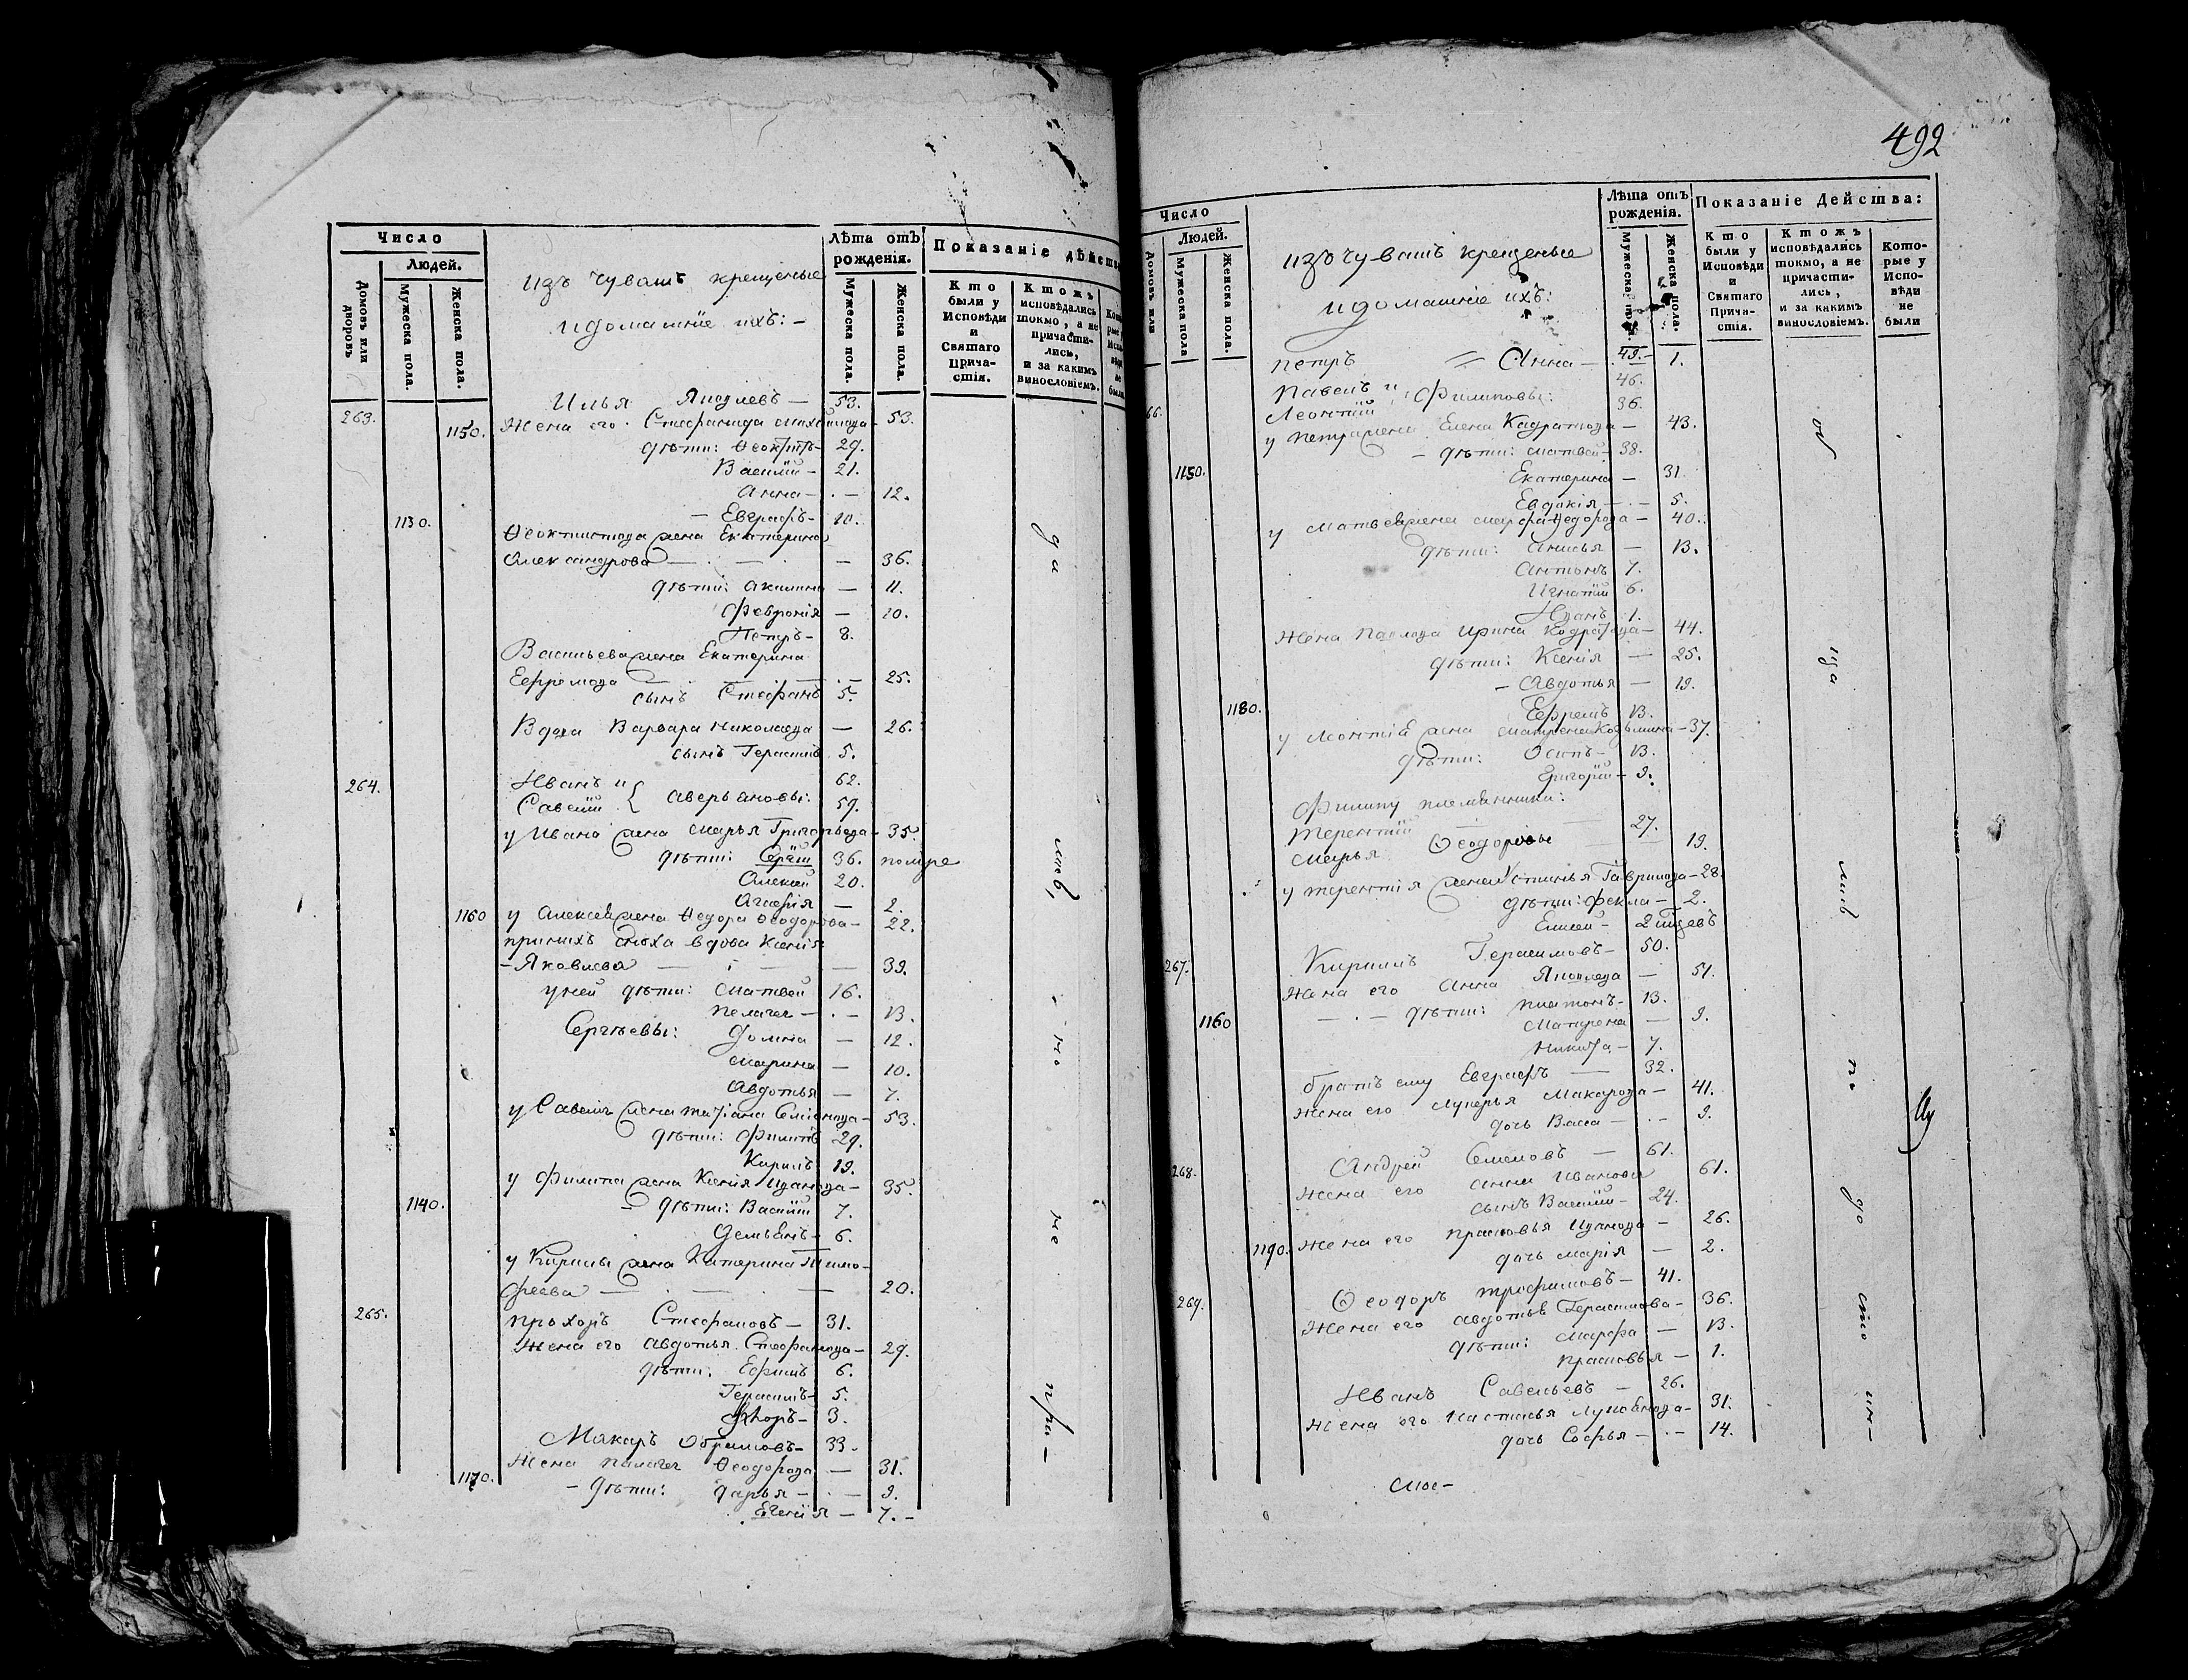 Число
Людей.
Домовъ или дворовъ
Мужеска пола.
Женска пола.
Изъ Чувашъ крещеные
и домашніе ихъ: –
Лѣта отъ рожденія.
Мужеска пола.
Женска пола.
Показаніе дѣйств
Кто были у Исповѣди и Святаго Причастія.
Ктожъ исповѣдались токмо, а не причастились, и за какимъ винословіемъ.
263. Илья Яковлевъ – 53.
1150. Жена его Стефанида 53.
дѣти: Ѳеоктистъ – 29.
Василій – 21.
Анна – 12.
1130. – Евграфъ – 10.
Ѳеоктистова жена Екатерина
Александрова – 36.
дѣти: Акилина – 11.
Февронія – 10.
Петръ – 8.
Васильева жена Екатерина
Ефремова – 25.
сынъ Стефанъ 5.
Вдова Варвара Николаева – 26.
сынъ Герасимъ 5.
264. Иванъ и 62.
Савелій Аверьановы: 59.
у Ивана жена Марья Григорьева – 35.
дѣти: Сергій 36. помре
Алексѣй 20.
Агафія – 2.
1160 у Алексѣя жена Ѳедора Ѳеодорова – 22.
при нихъ сноха вдова Ксенія
– Яковлева – 39.
у ней дѣти: Матвей 16.
Пелагея – 13.
Сергѣевы: Домна – 12.
Марина – 10.
Авдотья – 7.
у Савелія жена Татіана Семенова – 53.
дѣти: Филипъ 29.
Кирилъ 19.
у Филипа жена Ксенія Иванова – 35.
1140. – дѣти: Василій 7.
Демьянъ – 6.
у Кирилы жена Катерина Тимо-
феева – 20.
265. Прохоръ Стефановъ – 31.
Жена его Авдотья Стефанова – 29.
дѣти: Ефимъ 6.
Герасимъ – 5.
3.
Макаръ Абрамовъ – 33.
1170. Жена Палагея Ѳеодорова – 31.
– дѣти: Дарья – 9.
Евгенія – 7. –
да
но
не
при-
492
Число
Людей.
Домовъ или
Мужеска пола
Женска пола.
изъ Чувашъ крещеные
и домашніе ихъ:
Лѣта отъ рожденія.
Мужеска пола.
Женска пола.
Показаніе Действа:
Кто были у Исповѣди и Святаго Причастія.
Ктожъ исповѣдались токмо, а не причастились, и за какимъ винословіемъ.
Которые у Исповѣди не были
Петръ = Анна – 49. – 1.
Павелъ и 46.
66. Леонтій Филиповы: 36.
у Петра жена Елена Кадратова – 43.
– дѣти: Матвей – 38.
1150. Екатерина – 31.
Евдокія – 5.
у Матвея жена Марфа Ѳедорова – 40.
дѣти: Анисья – 13.
Антонъ 7.
Игнатій 6.
Иванъ 1.
Жена Павлова Ирина Кодратова – 44.
дѣти: Ксенія – 25.
– Авдотья – 19.
1180. Ефремъ 13.
у Леонтія жена Матрена Козьмина – 37.
дѣти: Осипъ – 13.
Григорій – 9.
Филипу племянники:
Терентій – 27.
Марья Ѳеодоровы 19.
у Терентія жена Устинья Гаврилова – 28.
дѣти: Фекла – 2.
Елисей – 2
267. Кирилъ Герасимовъ – 50.
Жена его Анна Яковлева – 51.
дѣти: Платонъ – 13.
1160 Матрена – 9.
Никита – 7.
братъ ему Евграфъ – 32.
Жена его Лукерья Макарова – 41.
дочь Васса – 9.
268. Андрей Семеновъ – 61.
Жена его Анна Иванова 61.
сынъ Василій – 24.
1190. Жена его Прасковья Иванова – 26.
дочь Марія – 2.
269. Ѳеодоръ Трофимовъ – 41.
Жена его Авдотья Герасимова – 36.
дѣти: Марфа – 13.
Прасковья – 1.
Иванъ Савельевъ – 26.
Жена его Настасья – 31.
дочь Софья – 14.
по
до
сто
ин-